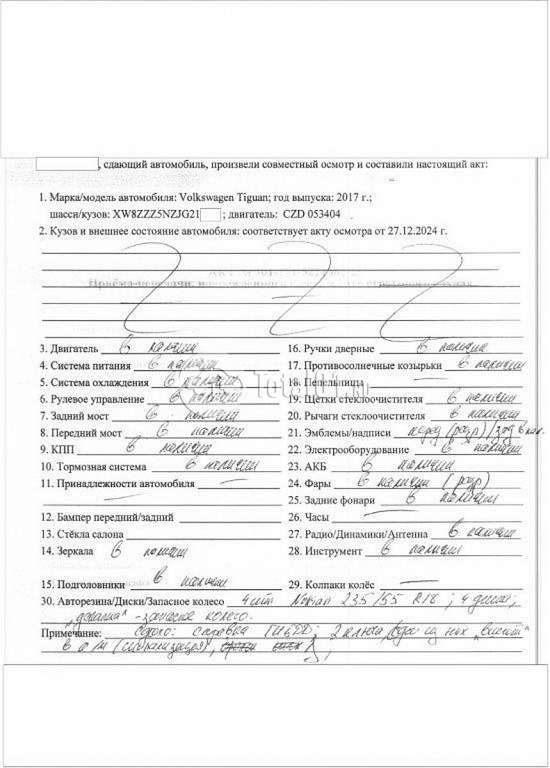 , сдающий автомобиль, произвели совместный осмотр и составили настоящий акт:
1. Марка/модель автомобиля: Volkswagen Tiguan; год выпуска: 2017 г.;
шасси/кузов: XW8ZZZ5NZJG21 ; двигатель: CZD 053404
2. Кузов и внешнее состояние автомобиля: соответствует акту осмотра от 27.12.2024 г.
3. Двигатель в наличии
4. Система питания в наличии
5. Система охлаждения в наличии
6. Рулевое управление в наличии
7. Задний мост в наличии
8. Передний мост в наличии
9. КПП в наличии
10. Тормозная система в наличии
11. Принадлежности автомобиля —
12. Бампер передний/задний
13. Стёкла салона
14. Зеркала в наличии
15. Подголовники в наличии
16. Ручки дверные в наличии
17. Противосолнечные козырьки в наличии
18. Пепельницы —
19. Щётки стеклоочистителя в наличии
20. Рычаги стеклоочистителя в наличии
21. Эмблемы/надписи перед (разр)/зад в нал.
22. Электрооборудование в наличии
23. АКБ в наличии
24. Фары в наличии (разр)
25. Задние фонари в наличии
26. Часы —
27. Радио/Динамики/Антенна в наличии
28. Инструмент в наличии
29. Колпаки колёс —
30. Авторезина/Диски/Запасное колесо 4 шт Nokian 235/55 R18; 4 диски;
- запасное колесо.
Примечание: справка ГИБДД; 2 ключа, один из них
в а/м (сигнализация),
Total01.ru